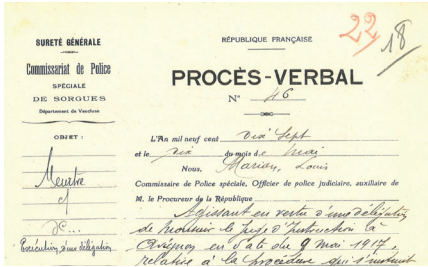 22
18
SURETÉ GÉNÉRALE
Commissariat de Police
SPÉCIALE
DE SORGUES
Département de Vaucluse
OBJET :
Meurtre
c/
Exécution d'une délégation
RÉPUBLIQUE FRANÇAISE
PROCÈS-VERBAL
N° 46
L'An mil neuf cent dix Sept
et le dix du mois de Mai
Nous, Marion, Louis
Commissaire de Police spéciale, Officier de police judiciaire, auxiliaire de
M. le Procureur de la République
Agissant en vertu d'une délégation
de Monsieur le Juge d'instruction à
Avignon en date du 9 Mai 1917,
relative à la procédure qui s'instruit